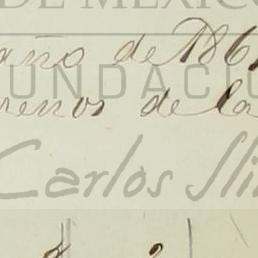 DE MÉXICO
año de 186
FUNDACIÓ
renos de la
Carlos Sli